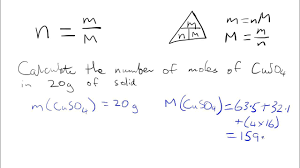 n = m/M
m
n M
m = nM
M = m/n
Calculate the number of moles of CuSO4
in 20g of solid
m(CuSO4) = 20g
M(CuSO4) = 63.5 + 32.1
+ (4x16)
= 159.